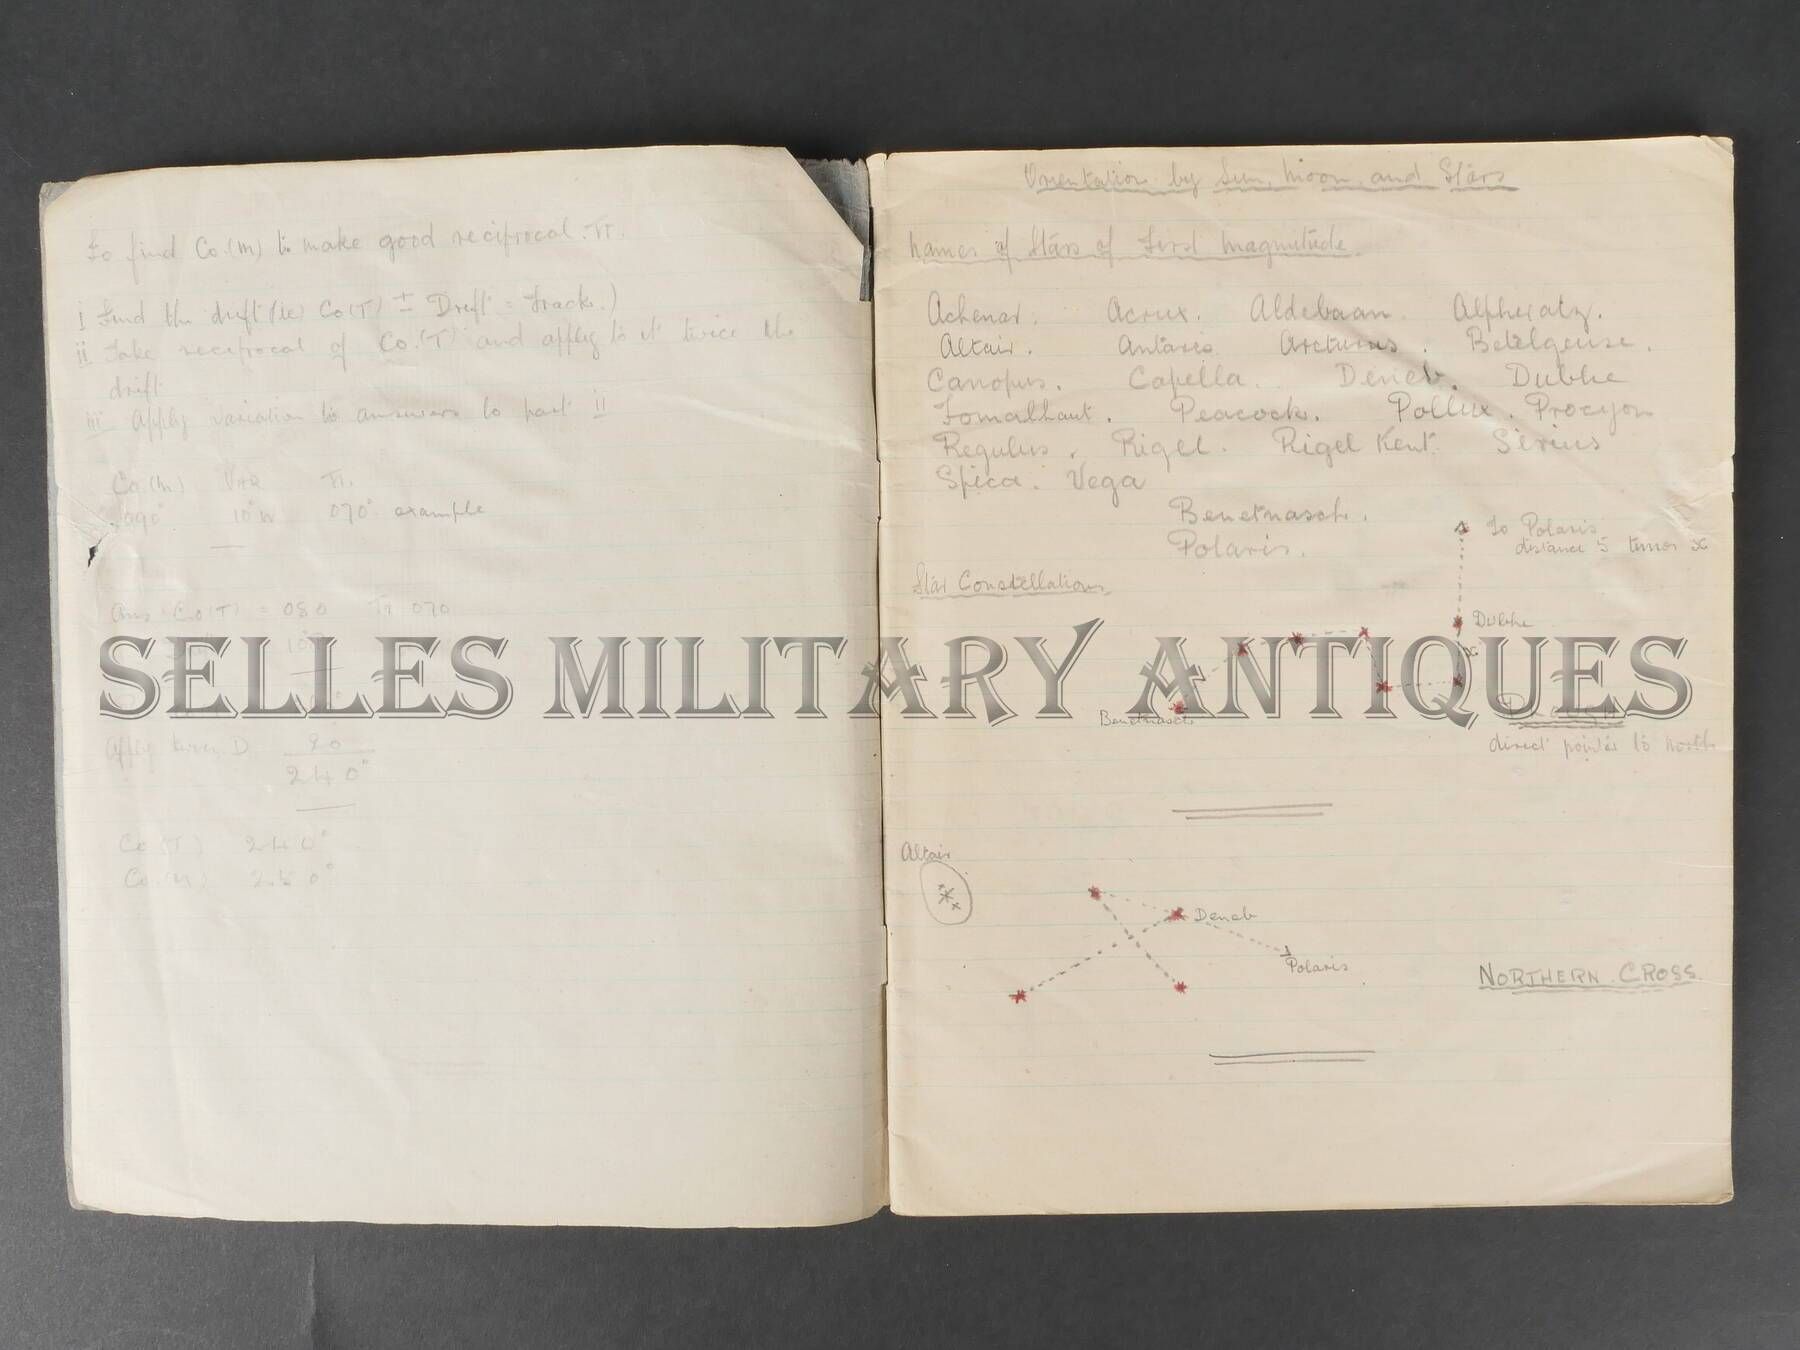 To find Co.(M) to make good reciprocal Tr.
i Find the drift (ie) Co(T) ± Drift = Track.)
ii Take reciprocal of Co.(T) and apply to it twice the
drift
iii Apply variation to answers to part ii
Co.(M) VAR Tr.
090° 10°W 070° example
Ans Co(T) = 080 Tr 070
10°
Apply twice D. 20
240°
Co(T) 240°
Co.(M) 250°
Orientation by Sun, Moon, and Stars
Names of Stars of First Magnitude.
Achenar. Acrux. Aldebaan. Alpheratz.
Altair. Antaris. Arcturus. Betelgeuse.
Canopus. Capella. Deneb. Dubhe
Fomalhaut. Peacock. Pollux. Procyon
Regulus. Rigel. Rigel Kent. Sirius
Spica. Vega
Benetnasch.
Polaris.
To Polaris
distance 5 times x
Star Constellations
Dubhe
x
Benetnasch
direct pointer to north
SELLES MILITARY ANTIQUES
Altair
Deneb
Polaris
NORTHERN CROSS.